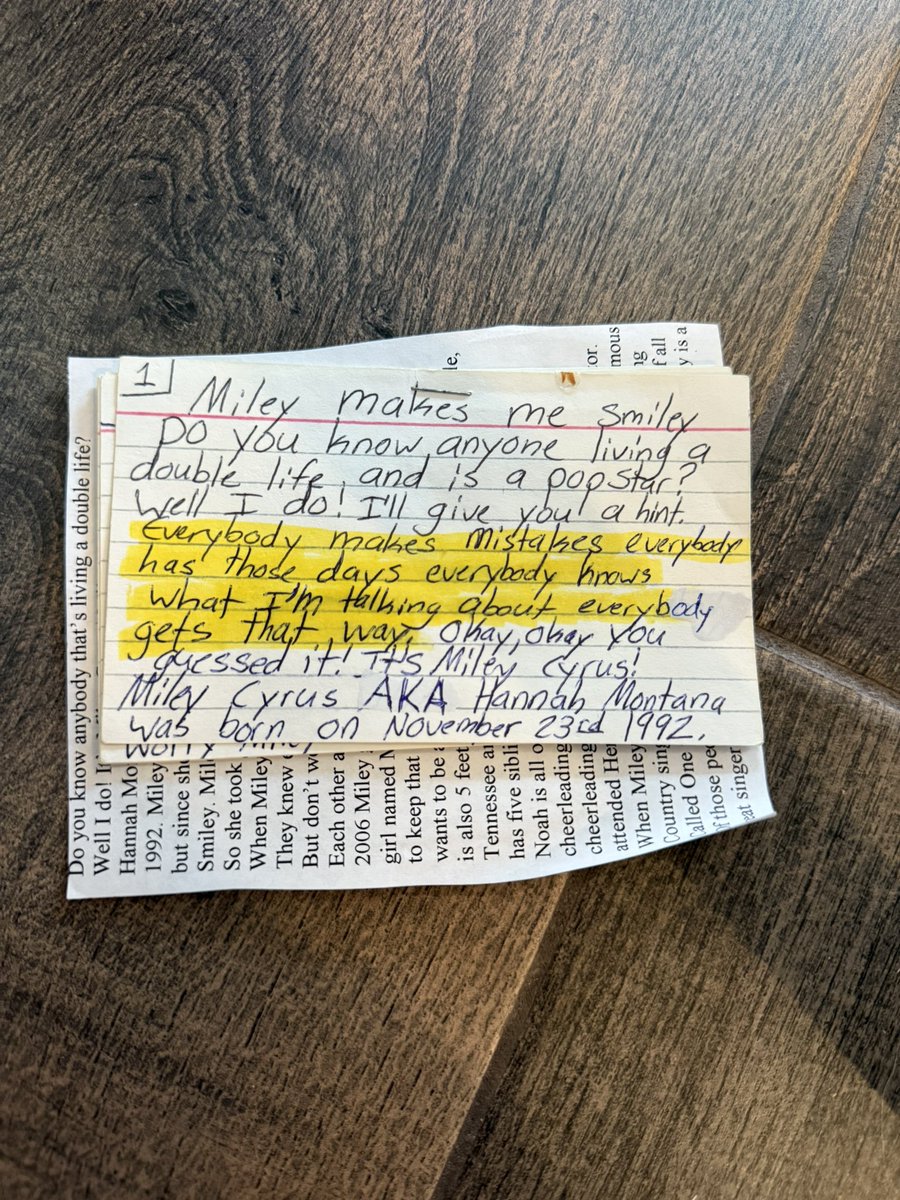 1
Miley makes me smiley
Do you know anyone living a
double life, and is a popstar?
Well I do! I'll give you a hint.
Everybody makes mistakes everybody
has those days everybody knows
what I'm talking about everybody
gets that way, Okay, okay you
guessed it! It's Miley Cyrus!
Miley Cyrus AKA Hannah Montana
was born on November 23rd 1992.
Do you know anybody that's living a double life?
Well I do! I
Hannah Mo
1992. Miley
but since she
Smiley. Mil
So she took
When Miley
They knew
But don't w
Each other a
2006 Miley
girl named M
to keep that
wants to be a
is also 5 feet
Tennessee an
has five sibli
Noah is all o
cheerleading
cheerleading
attended Her
When Miley
Country sing
Called One
of those pec
eat singer
le,
or.
mous
ng
f all
y is a